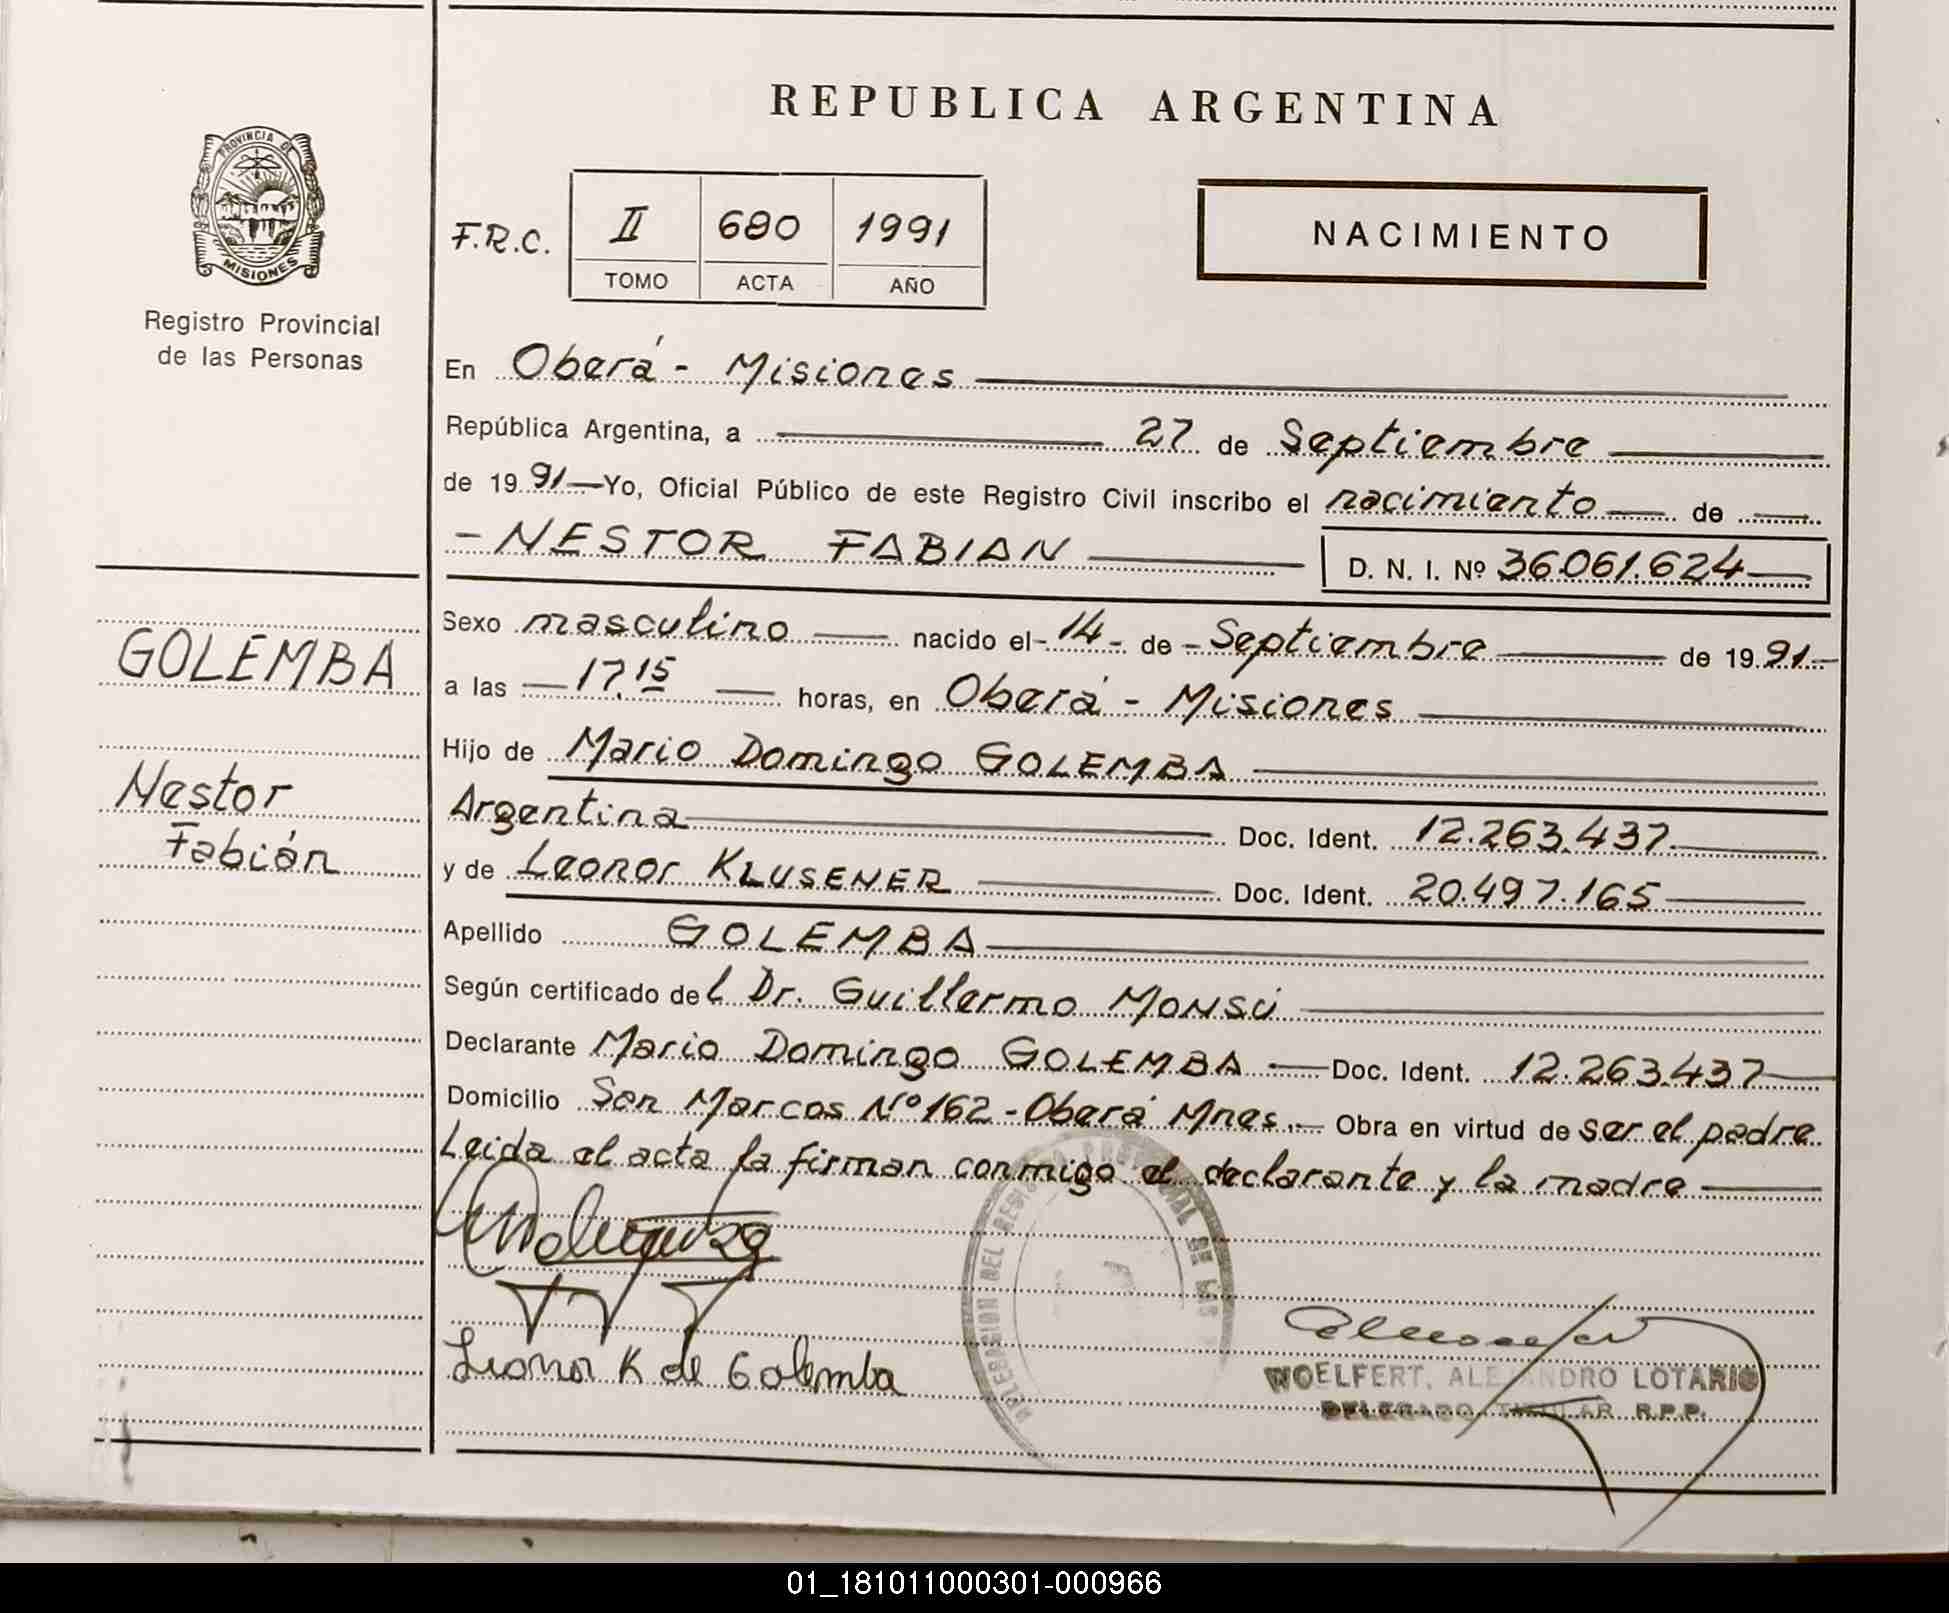 REPUBLICA ARGENTINA
PROVINCIA DE
MISIONES
Registro Provincial
de las Personas
F.R.C.
II 680 1991
TOMO ACTA AÑO
NACIMIENTO
En Oberá - Misiones
República Argentina, a 27 de Septiembre
de 1991 Yo, Oficial Público de este Registro Civil inscribo el nacimiento de
- NESTOR FABIAN D. N. I. Nº 36.061.624
Sexo masculino nacido el - 14 - de - Septiembre de 1991 -
a las 17.15 horas, en Oberá - Misiones
Hijo de Mario Domingo GOLEMBA
Argentina Doc. Ident. 12.263.437
y de Leonor KLUSENER Doc. Ident. 20.497.165
Apellido GOLEMBA
Según certificado del Dr. Guillermo MONSÚ
Declarante Mario Domingo GOLEMBA Doc. Ident. 12.263.437
Domicilio San Marcos Nº 162 - Oberá Mnes. Obra en virtud de ser el padre.
Leida el acta la firman conmigo el declarante y la madre
GOLEMBA
Nestor
Fabián
Leonor K de Golemba
DELEGACION DEL REGISTRO PROVINCIAL DE LAS
WOELFERT, ALEJANDRO LOTARIO
DELEGADO TITULAR R.P.P.
01_181011000301-000966